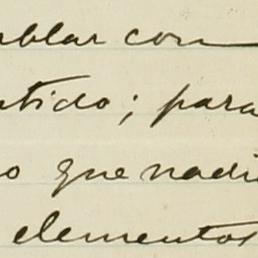 ablar con
ntido; para
o que nadi
elementos